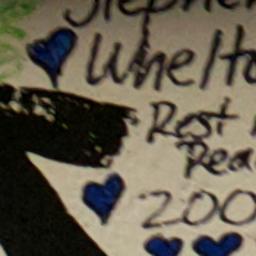 Stephe
Whelto
Rest
Pea
200